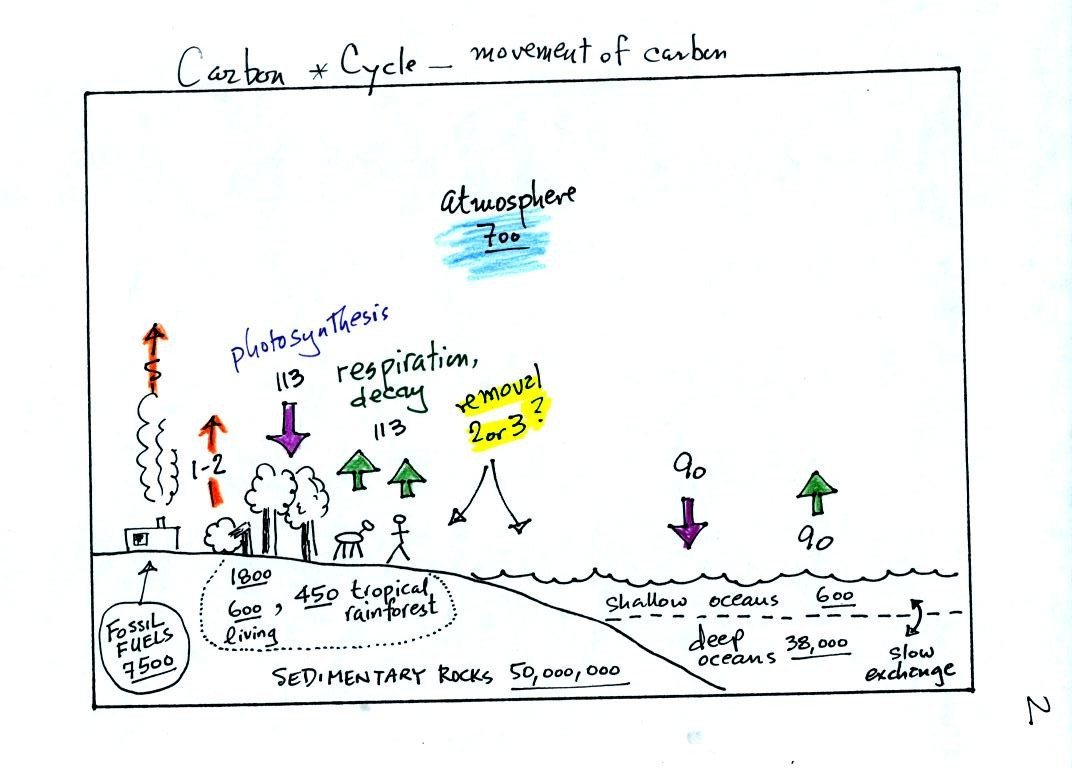 Carbon * Cycle - movement of carbon
atmosphere
700
photosynthesis
113
respiration,
decay
113
removal
2 or 3 ?
5
1-2
90
90
1800
600, 450 tropical
rainforest
living
FOSSIL
FUELS
7500
shallow oceans 600
deep
oceans 38,000
slow
exchange
SEDIMENTARY ROCKS 50,000,000
2